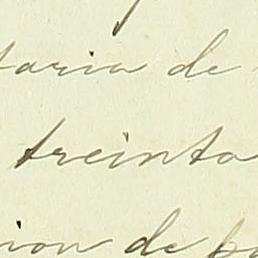 taria de
treinta
ion de